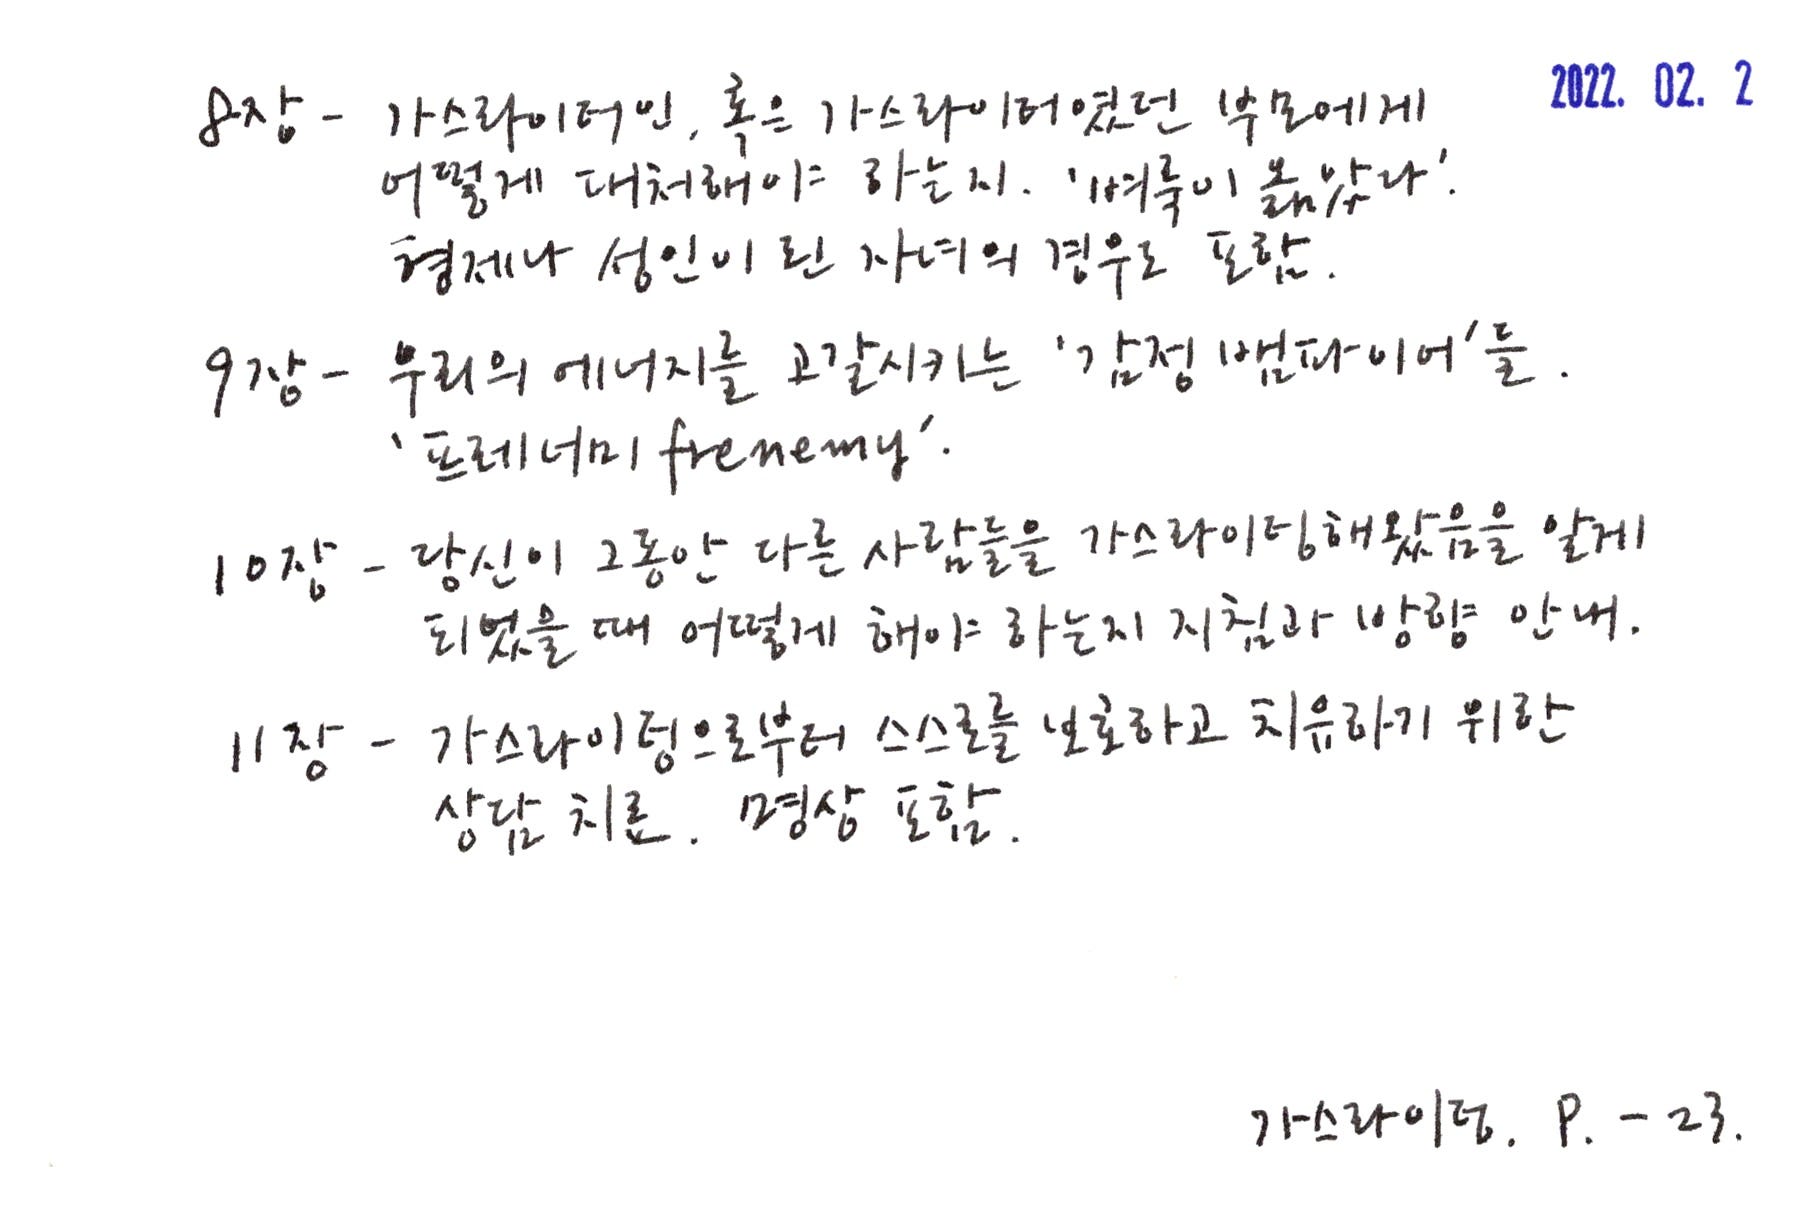 2022. 02. 2
8장 - 가스라이터인, 혹은 가스라이터였던 부모에게
어떻게 대처해야 하는지. '벼룩이 옮았다'.
형제나 성인이 된 자녀의 경우도 포함.
9장 - 우리의 에너지를 고갈시키는 '감정 뱀파이어'들.
'프레너미 frenemy'.
10장 - 당신이 그동안 다른 사람들을 가스라이팅해왔음을 알게
되었을 때 어떻게 해야 하는지 지침과 방향 안내.
11장 - 가스라이팅으로부터 스스로를 보호하고 치유하기 위한
상담 치료. 명상 포함.
가스라이팅. P. - 23.